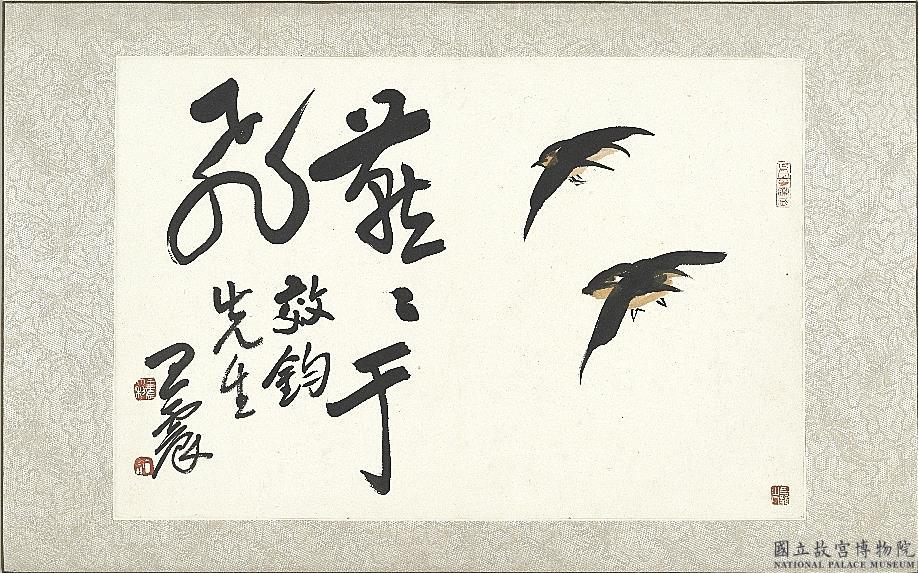 燕〻于
飛
效鈞
先生
王震
國立故宮博物院
NATIONAL PALACE MUSEUM